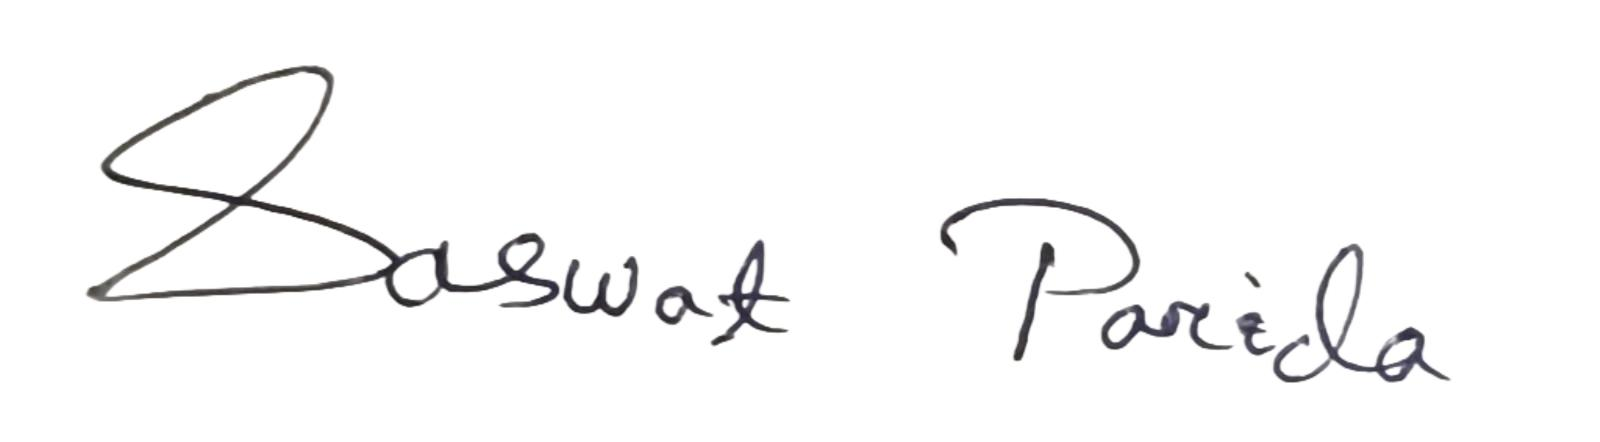 Saswat Parida